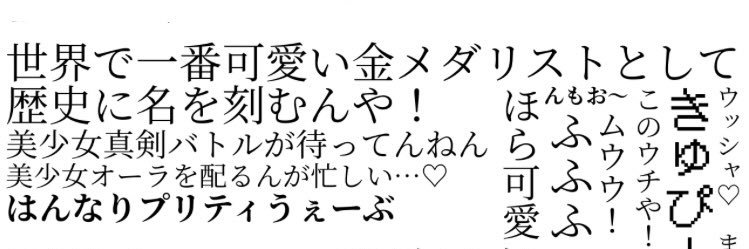 世界で一番可愛い金メダリストとして
歴史に名を刻むんや！
美少女真剣バトルが待ってんねん
美少女オーラを配るんが忙しい…♡
はんなりプリティうぇーぶ
ほら可愛
んもお〜
ふふふふ
ムウウ！
このウチや！
きゅぴ
ウッシャ♡